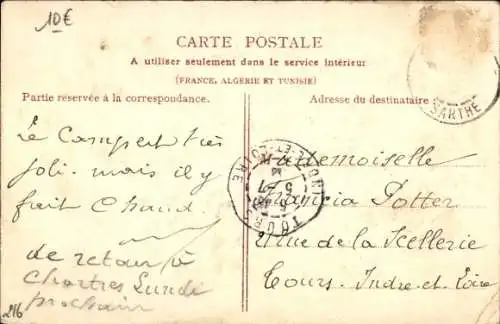 10€
CARTE POSTALE
A utiliser seulement dans le service intérieur
(FRANCE, ALGERIE ET TUNISIE)
Partie réservée à la correspondance.
Adresse du destinataire
SARTHE
Le Camp est très
joli. mais il y
fait Chaud.
de retour à
Chartres Lundi
prochain
Mademoiselle
Potter
Rue de la Scellerie
Tours. Indre et Loire
TOURS
INDRE-ET-LOIRE
216